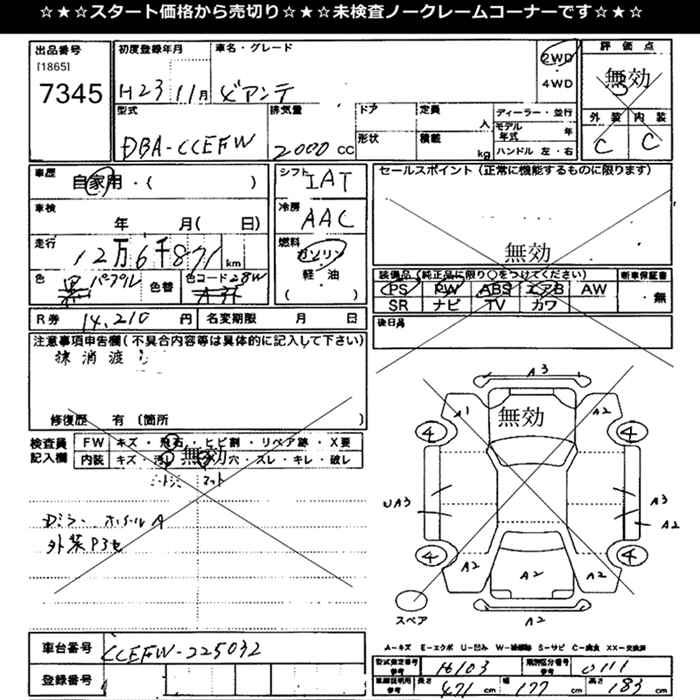 ☆★☆★スタート価格から売切り☆★☆★未検査ノークレームコーナーです☆★☆
出品番号 初度登録年月 車名・グレード 2WD 評価点
[1865]
7345 H23 11月 ビアンテ 4WD 無効
型式 排気量 ドア 定員 人 ディーラー・並行 外装 内装
DBA-CCEFW 2000 CC 形状 積載 kg モデル年式 年 C C
ハンドル 左・右
車歴 自家用・( ) シフト IAT セールスポイント(正常に機能するものに限ります)
車検 年 月( 日) 冷房 AAC
走行 12万6千871 km 燃料 ガソリン 無効
色 黒 パープル 色替 色コード 28W 軽・油 ( )
装備品(純正品に限り○をつけてください) 新車保証書
PS PW ABS エアB AW ・無
SR ナビ TV カワ
R券 14,210 円 名変期限 月 日 後日品
注意事項申告欄(不具合内容等は具体的に記入して下さい)
抹消渡
修復歴 有(箇所 )
検査員記入欄 FW キズ・飛石・ヒビ割・リペア跡・X要
内装 キズ・汚・穴・ズレ・キレ・破レ
無効
ホイールA
外装
A3
A1 無効 A2
4 4
UA3 A3
A2
4 4
A2 A2 A2
スペア A2
車台番号 CCEFW-225032
登録番号
A-キズ E-エクボ U-凹み W-補修跡 S-サビ C-腐食 XX-交換済
型式指定番号 参考 16103 類別区分番号 参考 0111
車検証明用 参考 長さ 471 cm 幅 177 cm 高さ 183 cm